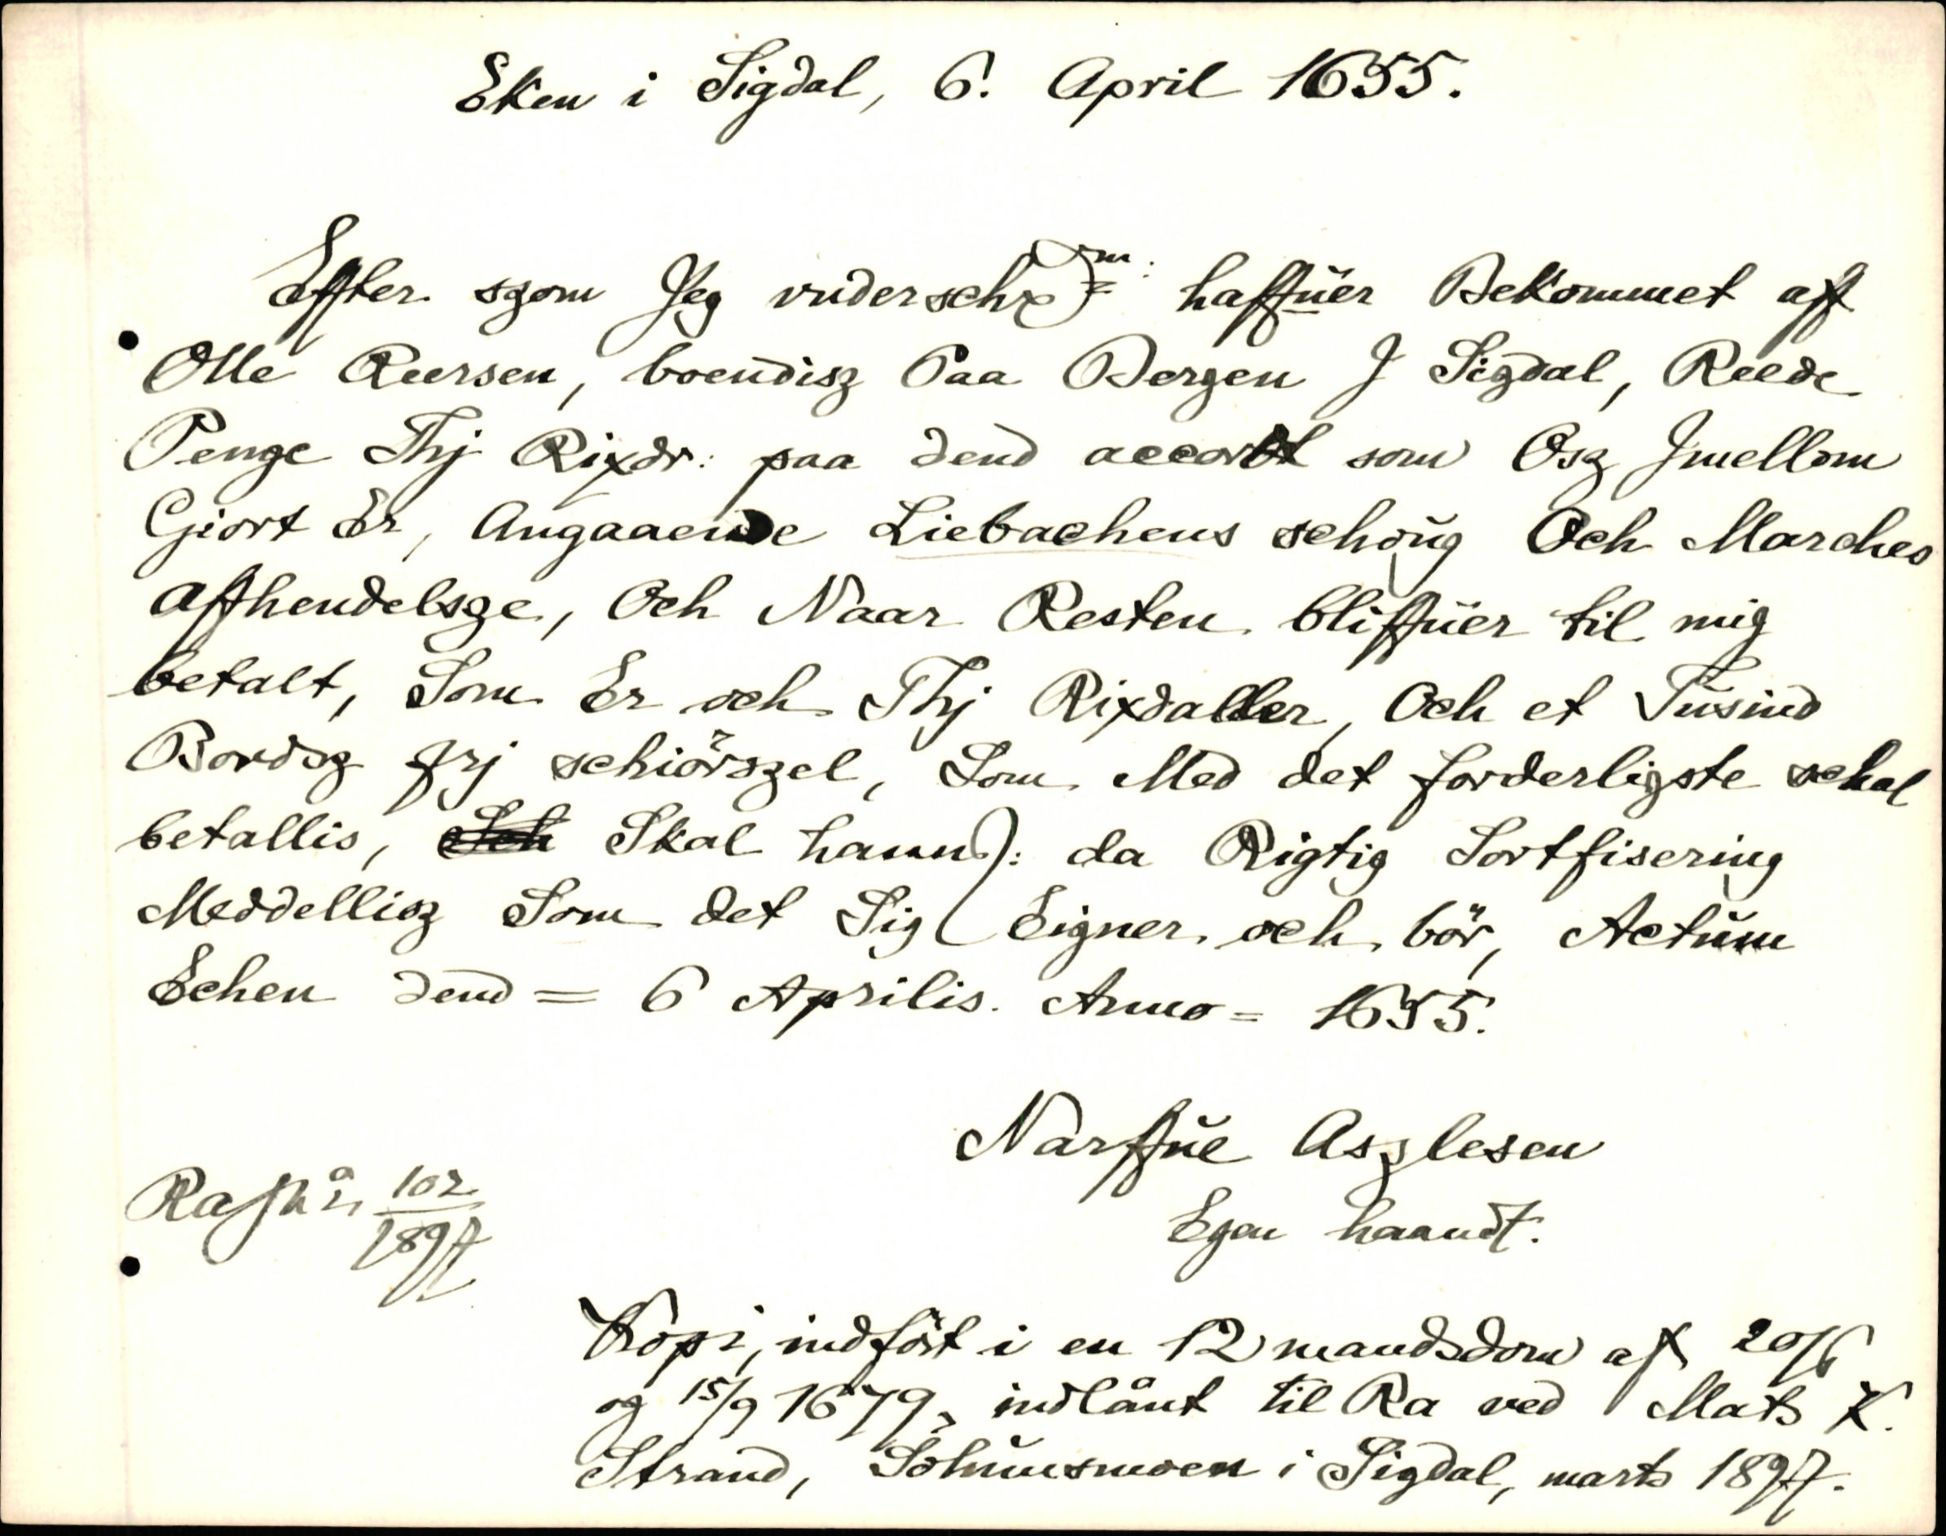 Eken i Sigdal, 6. April 1655.
Effter szom Jeg vnderschr=m: haffŭer Bekommet aff
Olle Reersen, boendisz Paa Bergen J Sigdal, Reede
Penge Thj Rixdr: paa dend accordt som Osz Jmellom
Giort Er, Angaaende Liebachens schoŭg Och Marches
Affhendelsze, Och Naar Resten bliffŭer til mig
betalt, Som Er och Thj Rixdaller, Och et Tŭsind
Bordsz frj schiörszel, Som Med det forderligste schal
betallis, Sch Skal hannd: da Rigtig Sortfisering
Meddellisz Som det Sig Eigner och bör, Actŭm
Echen dend = 6 Aprilis. Anno = 1655.
Narffŭe Aszlesen
Egen haandt.
Ra jk å 102/1897
Kopi, indført i en 12 mandsdom af 20/6
og 15/9 1679, indlånt til Ra ved Mats K.
Strand, Solŭmsmoen i Sigdal, marts 1897.